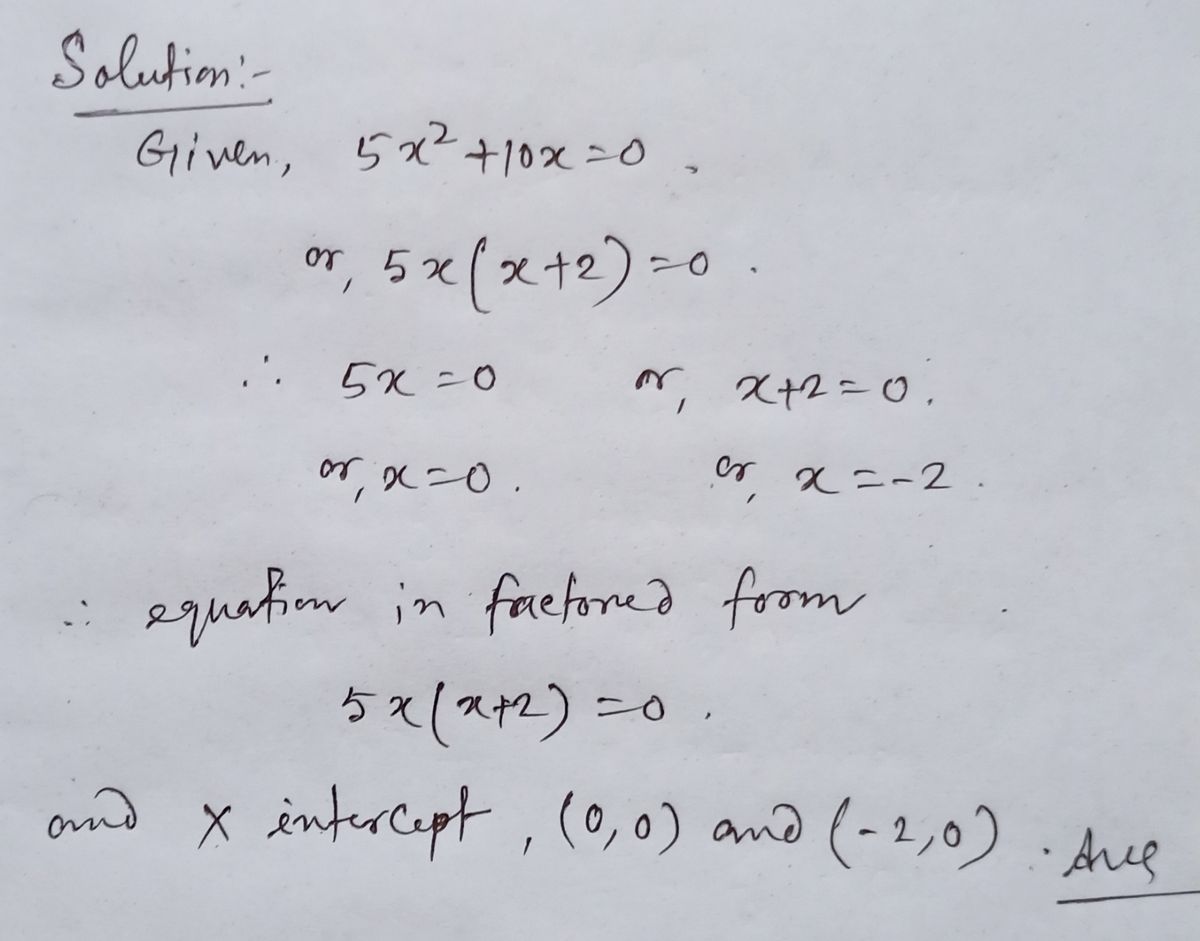 Solution:-
Given, 5x² + 10x = 0.
or, 5x(x+2) = 0.
∴ 5x = 0 or, x+2 = 0.
or, x = 0. or, x = -2.
∴ equation in factored form
5x(x+2) = 0.
and x intercept, (0,0) and (-2,0). Ans